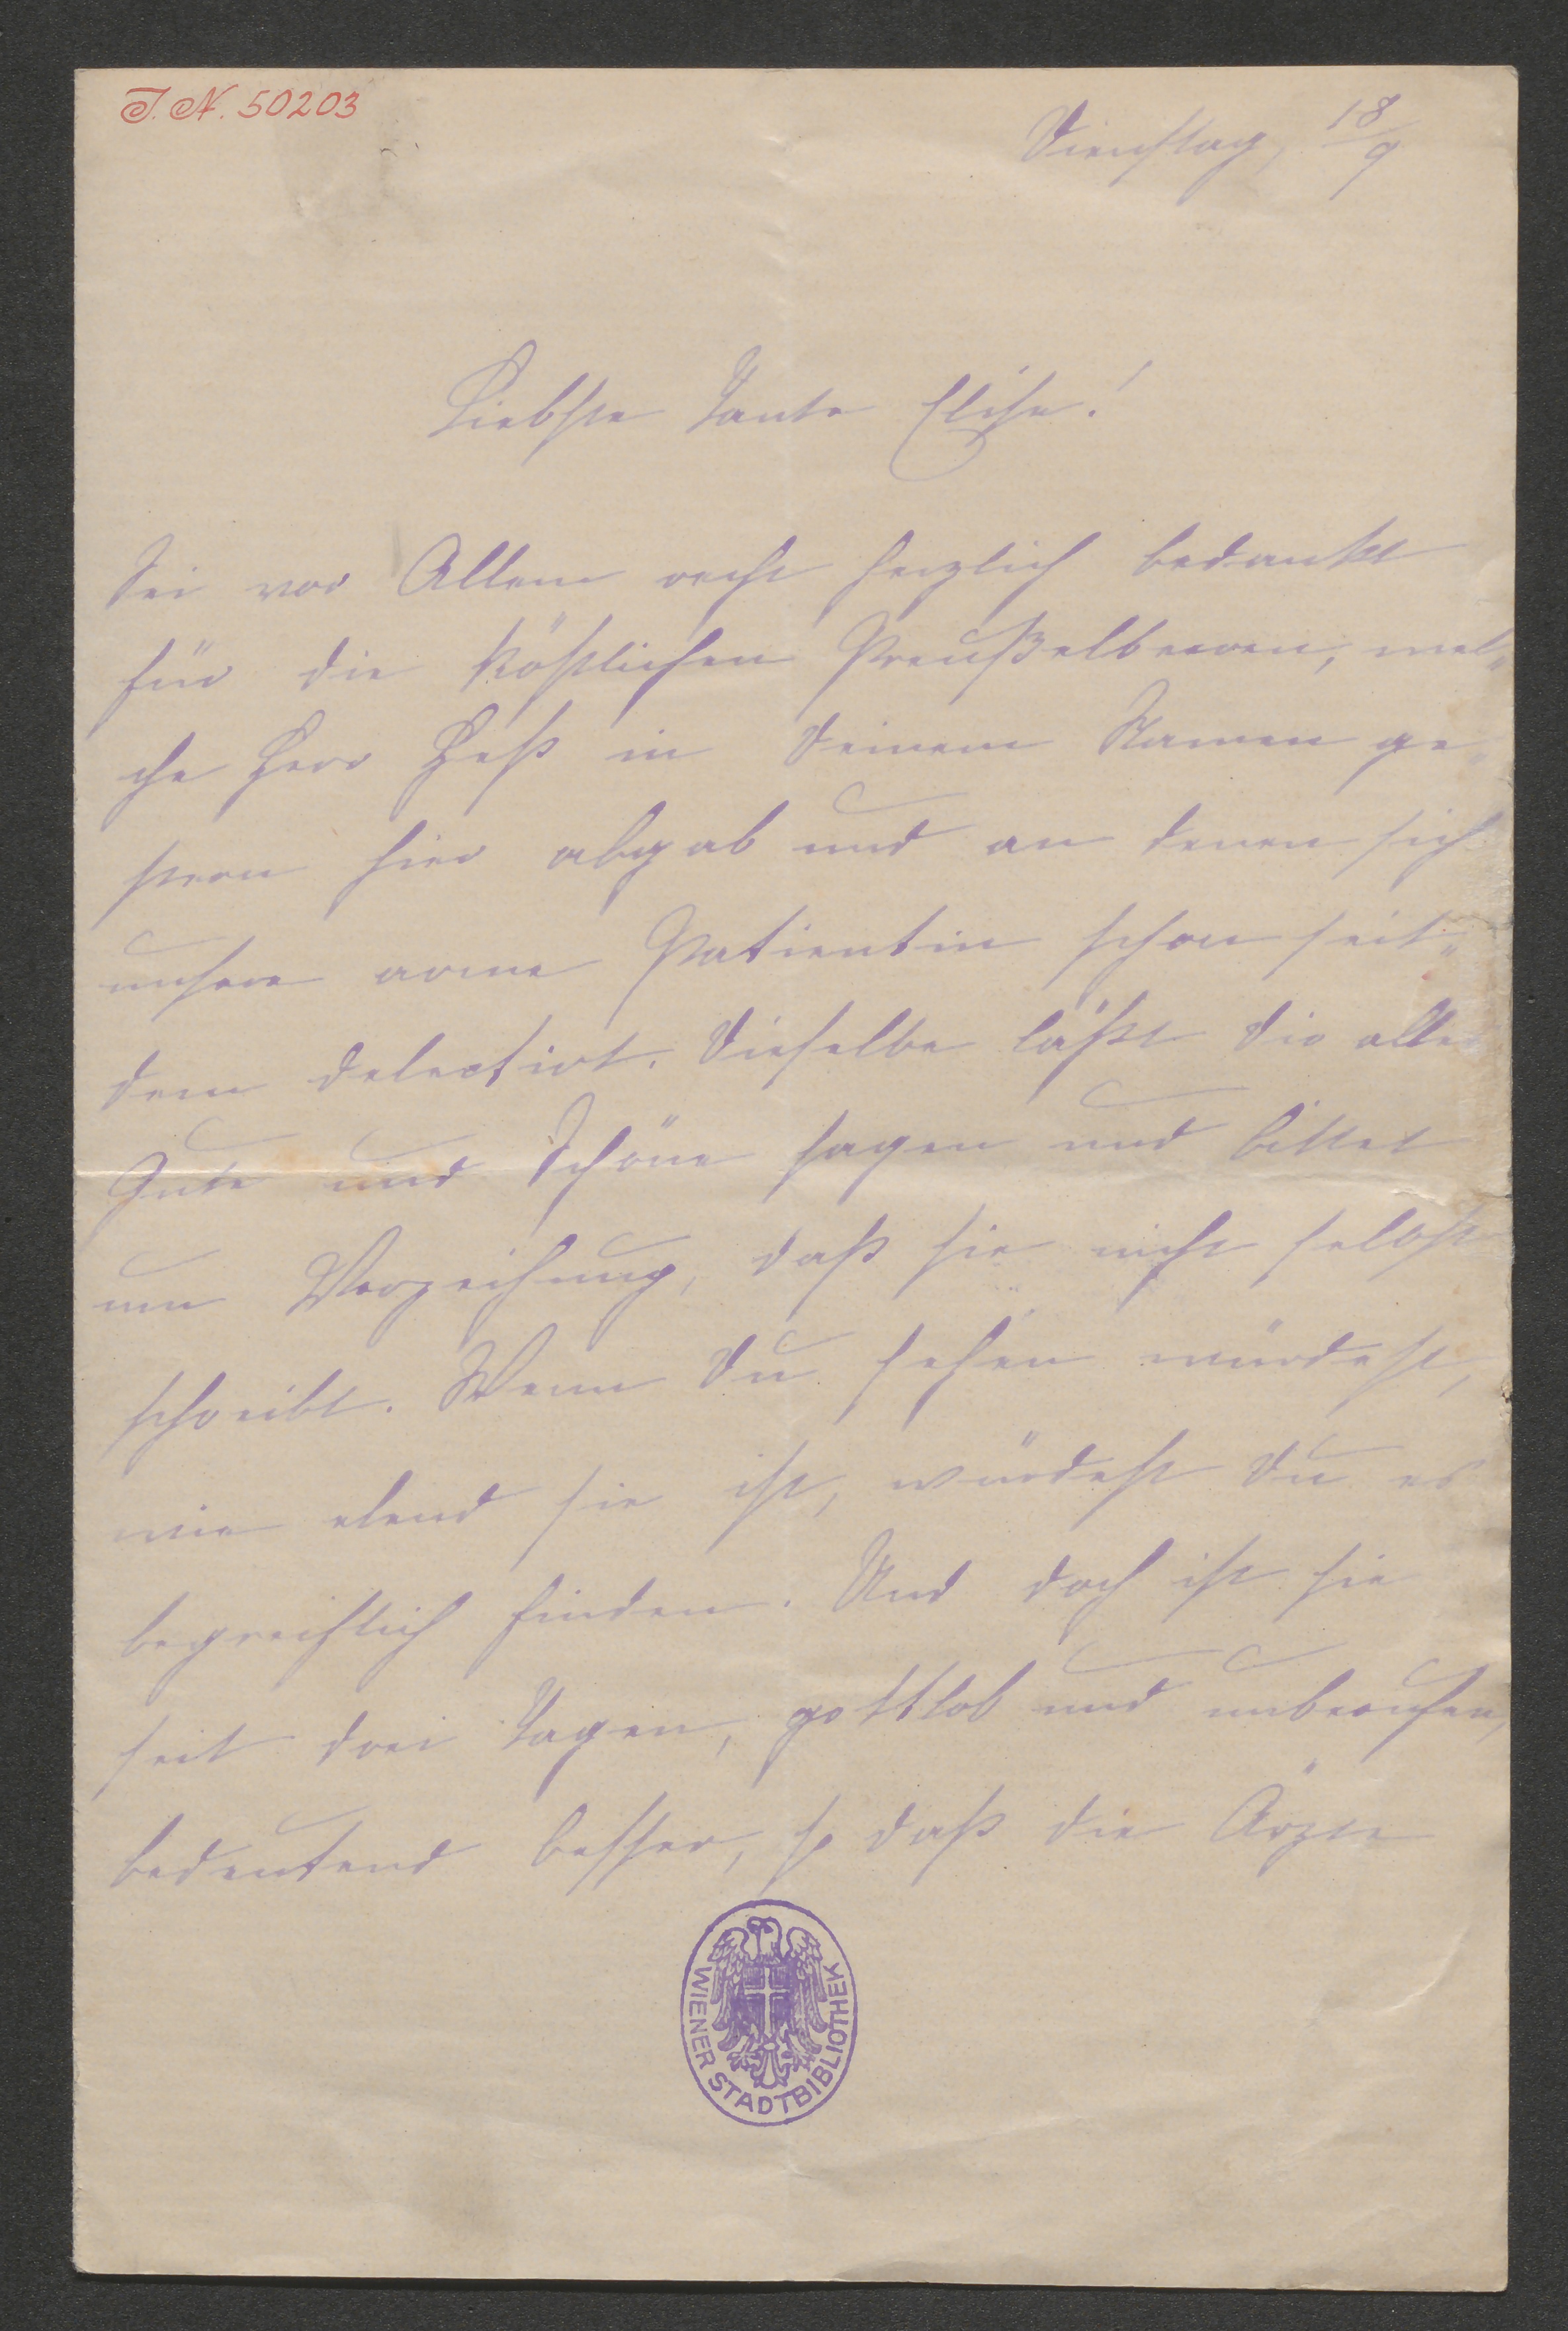 J. N. 50203
Dienstag, 18/9
Liebste Tante Elise!
Sei vor Allem recht herzlich bedankt
für die köstlichen Preußelbeeren, wel„
che Herr Heß in Deinem Namen ge„
stern hier abgab und an denen sich
unsere arme Patientin schon seit„
dem delectirt. Dieselbe läßt Dir alles
Gute und Schöne sagen und bittet
um Verzeihung, daß sie nicht selbst
schreibt. Wenn Du sehen würdest,
wie elend sie ist, würdest Du es
begreiflich finden. Und doch ist sie
seit drei Tagen, gottlob und unberufen,
bedeutend besser, so daß die Ärzte
WIENER STADTBIBLIOTHEK